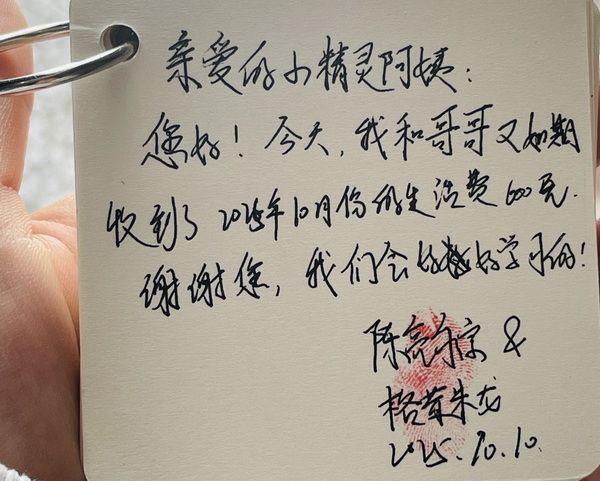 亲爱的小精灵阿姨:
您好! 今天, 我和哥哥又如期
收到了 2025年10月份的生活费 600元.
谢谢您, 我们会好好学习的!
陈亮 &
格 朱龙
2025.10.10.